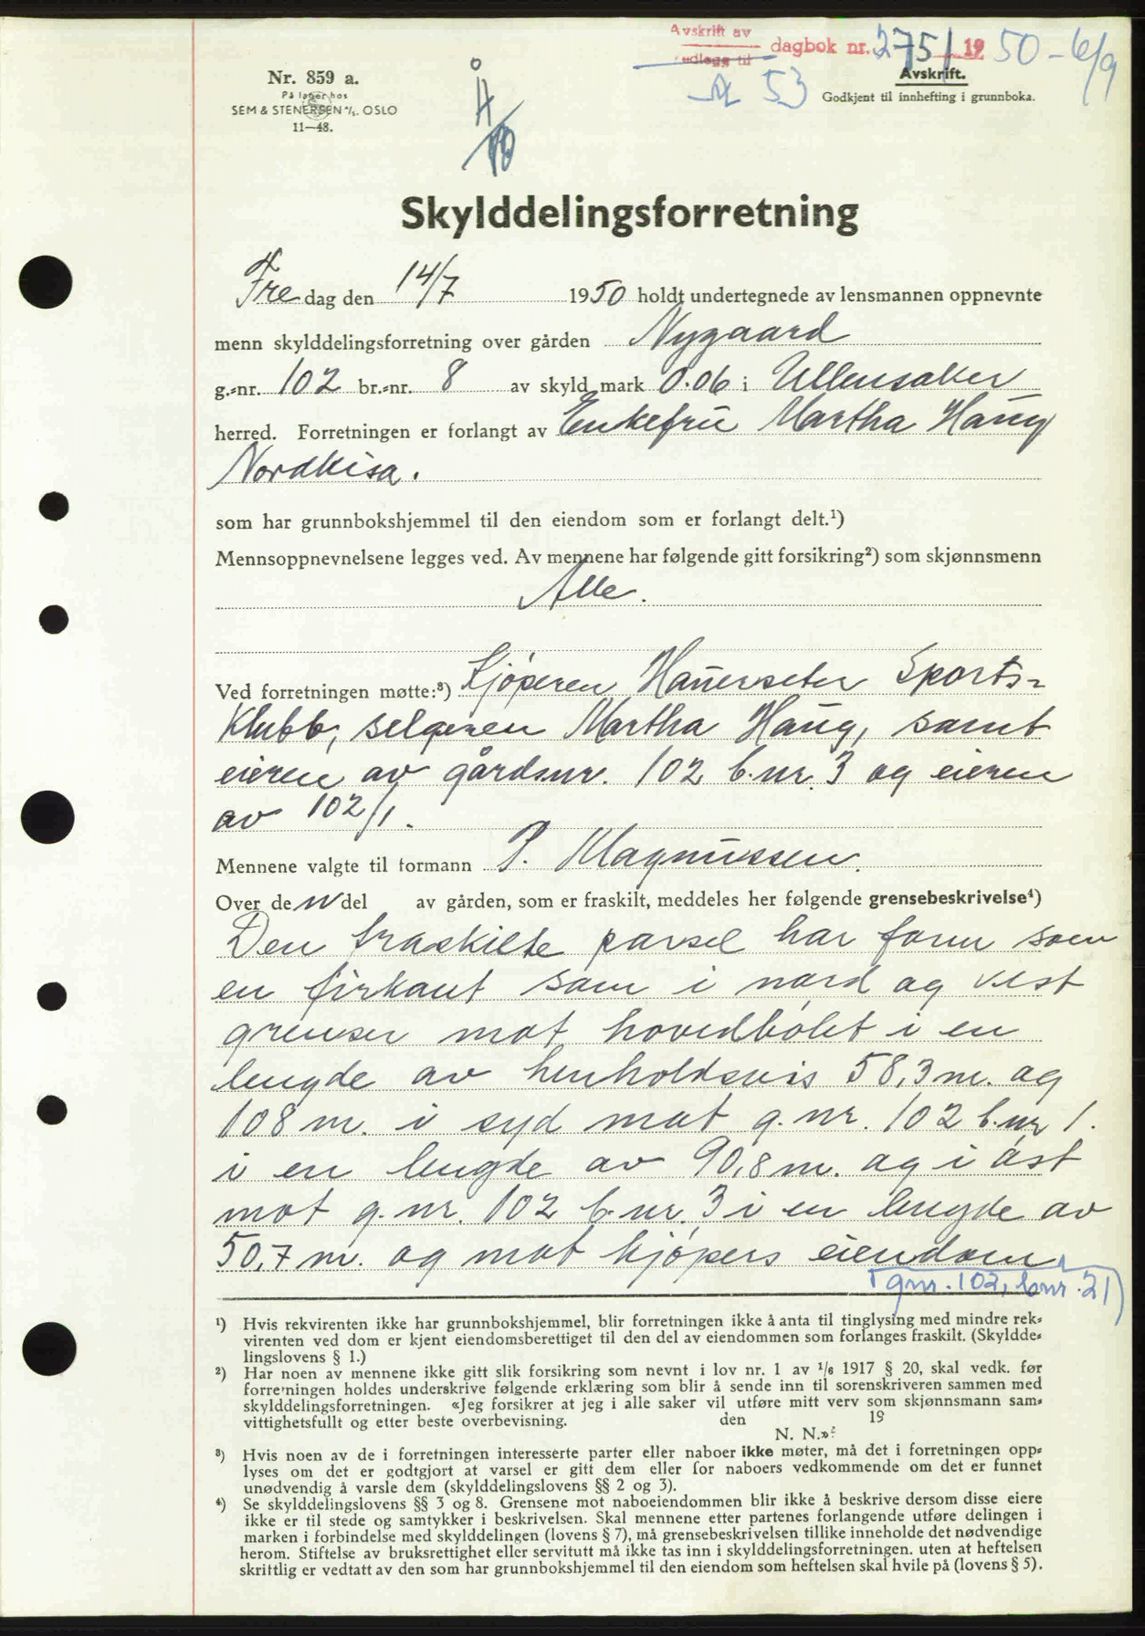 Avskrift av
utlegg til dagbok nr. 2751 1950 - 6/9
Nr. 53
Avskrift.
Godkjent til innhefting i grunnboka.
Nr. 859 a.
På lager hos
SEM & STENERSEN A/S. OSLO
11—48.
Skylddelingsforretning
Fredag den 14/7 1950 holdt undertegnede av lensmannen oppnevnte
menn skylddelingsforretning over gården Nygaard
g.-nr. 102 br.-nr. 8 av skyld mark 0.06 i Ullensaker
herred. Forretningen er forlangt av Enkefru Martha Haug
Nordkisa.
som har grunnbokshjemmel til den eiendom som er forlangt delt.¹)
Mennsoppnevnelsene legges ved. Av mennene har følgende gitt forsikring²) som skjønnsmenn
Alle.
Ved forretningen møtte:³) Kjøperen Hauerseter Sports-
klubb, selgeren Martha Haug, samt
eieren av gårdsnr. 102 b.nr. 3 og eieren
av 102/1.
Mennene valgte til formann P. Magnussen.
Over den del av gården, som er fraskilt, meddeles her følgende grensebeskrivelse⁴)
Den fraskilte parsel har form som
en firkant som i nord og vest
grenser mot hovedbølet i en
lengde av henholdsvis 58,3 m. og
108 m. i syd mot g.nr. 102 b.nr 1.
i en lengde av 90,8 m. og i øst
mot g.nr. 102 b.nr. 3 i en lengde av
50,7 m. og mot kjøpers eiendom
gnr. 102, bnr. 21)
¹) Hvis rekvirenten ikke har grunnbokshjemmel, blir forretningen ikke å anta til tinglysing med mindre rek-
virenten ved dom er kjent eiendomsberettiget til den del av eiendommen som forlanges fraskilt. (Skyldde-
lingslovens § 1.)
²) Har noen av mennene ikke gitt slik forsikring som nevnt i lov nr. 1 av 1/6 1917 § 20, skal vedk. før
forretningen holdes underskrive følgende erklæring som blir å sende inn til sorenskriveren sammen med
skylddelingsforretningen. «Jeg forsikrer at jeg i alle saker vil utføre mitt verv som skjønnsmann sam-
vittighetsfullt og etter beste overbevisning. den 19
N. N.»
³) Hvis noen av de i forretningen interesserte parter eller naboer ikke møter, må det i forretningen opp-
lyses om det er godtgjort at varsel er gitt dem eller for naboers vedkommende om det er funnet
unødvendig å varsle dem (skylddelingslovens §§ 2 og 3).
⁴) Se skylddelingslovens §§ 3 og 8. Grensene mot naboeiendommen blir ikke å beskrive dersom disse eiere
ikke er til stede og samtykker i beskrivelsen. Skal mennene etter partenes forlangende utføre delingen i
marken i forbindelse med skylddelingen (lovens § 7), må grensebeskrivelsen tillike inneholde det nødvendige
herom. Stiftelse av bruksrettighet eller servitutt må ikke tas inn i skylddelingsforretningen, uten at heftelsen
skriftlig er vedtatt av den som har grunnbokshjemmel til den eiendom som heftelsen skal hvile på (lovens § 5).